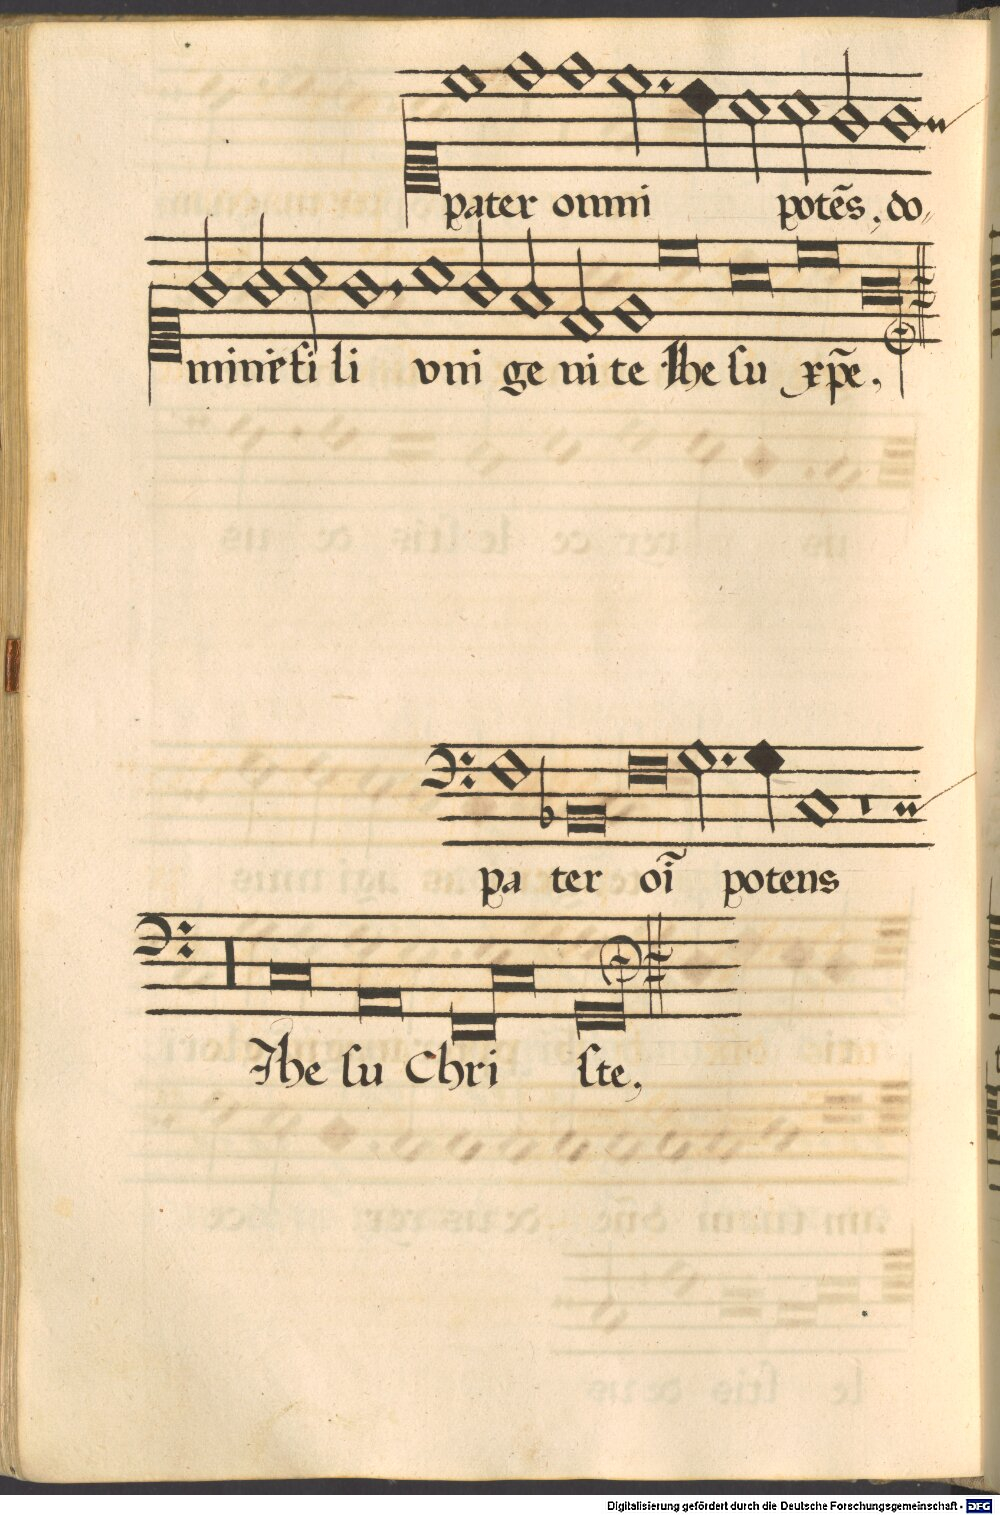 pater omni potēs, do
mine fi li vni ge ni te Ihe su xp̄e,
pa ter oi̅ potens
Ihe su Chri ste,
Digitalisierung gefördert durch die Deutsche Forschungsgemeinschaft - DFG